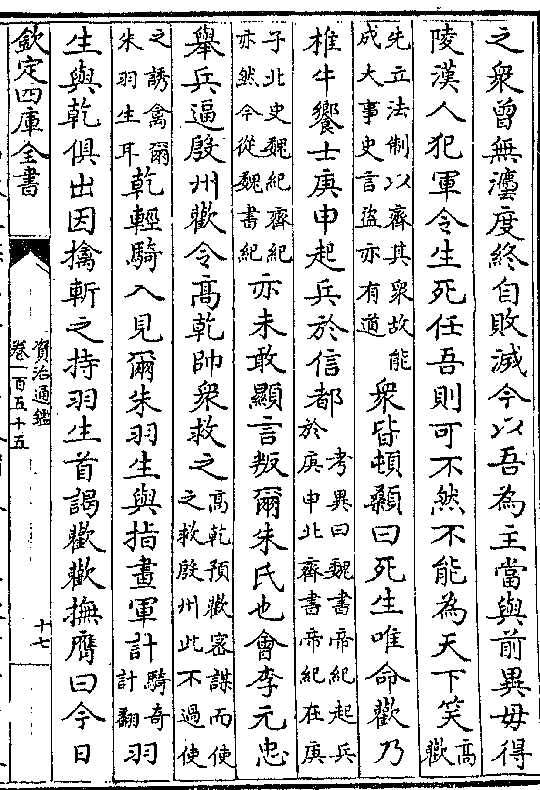 之衆曾無灋度終自敗滅今以吾為主當與前異毋得
陵漢人犯軍令生死任吾則可不然不能為天下笑高歡
先立法制以齊其衆故能成大事史言盜亦有道衆皆頓顙曰死生唯命歡乃
椎牛饗士庚申起兵於信都考異曰魏書帝紀起兵於庚申北齊書帝紀在庚
子北史魏紀齊紀亦然今從魏書紀亦未敢顯言叛爾朱氏也會李元忠
舉兵逼殷州歡令高乾帥衆救之高乾預歡密謀而使之救殷州此不過使
之誘禽爾朱羽生耳乾輕騎入見爾朱羽生與指畫軍計騎奇計翻羽
生與乾俱出因擒斬之持羽生首謁歡歡撫膺曰今日
欽定四庫全書
資治通鑑
卷一百五十五
十七